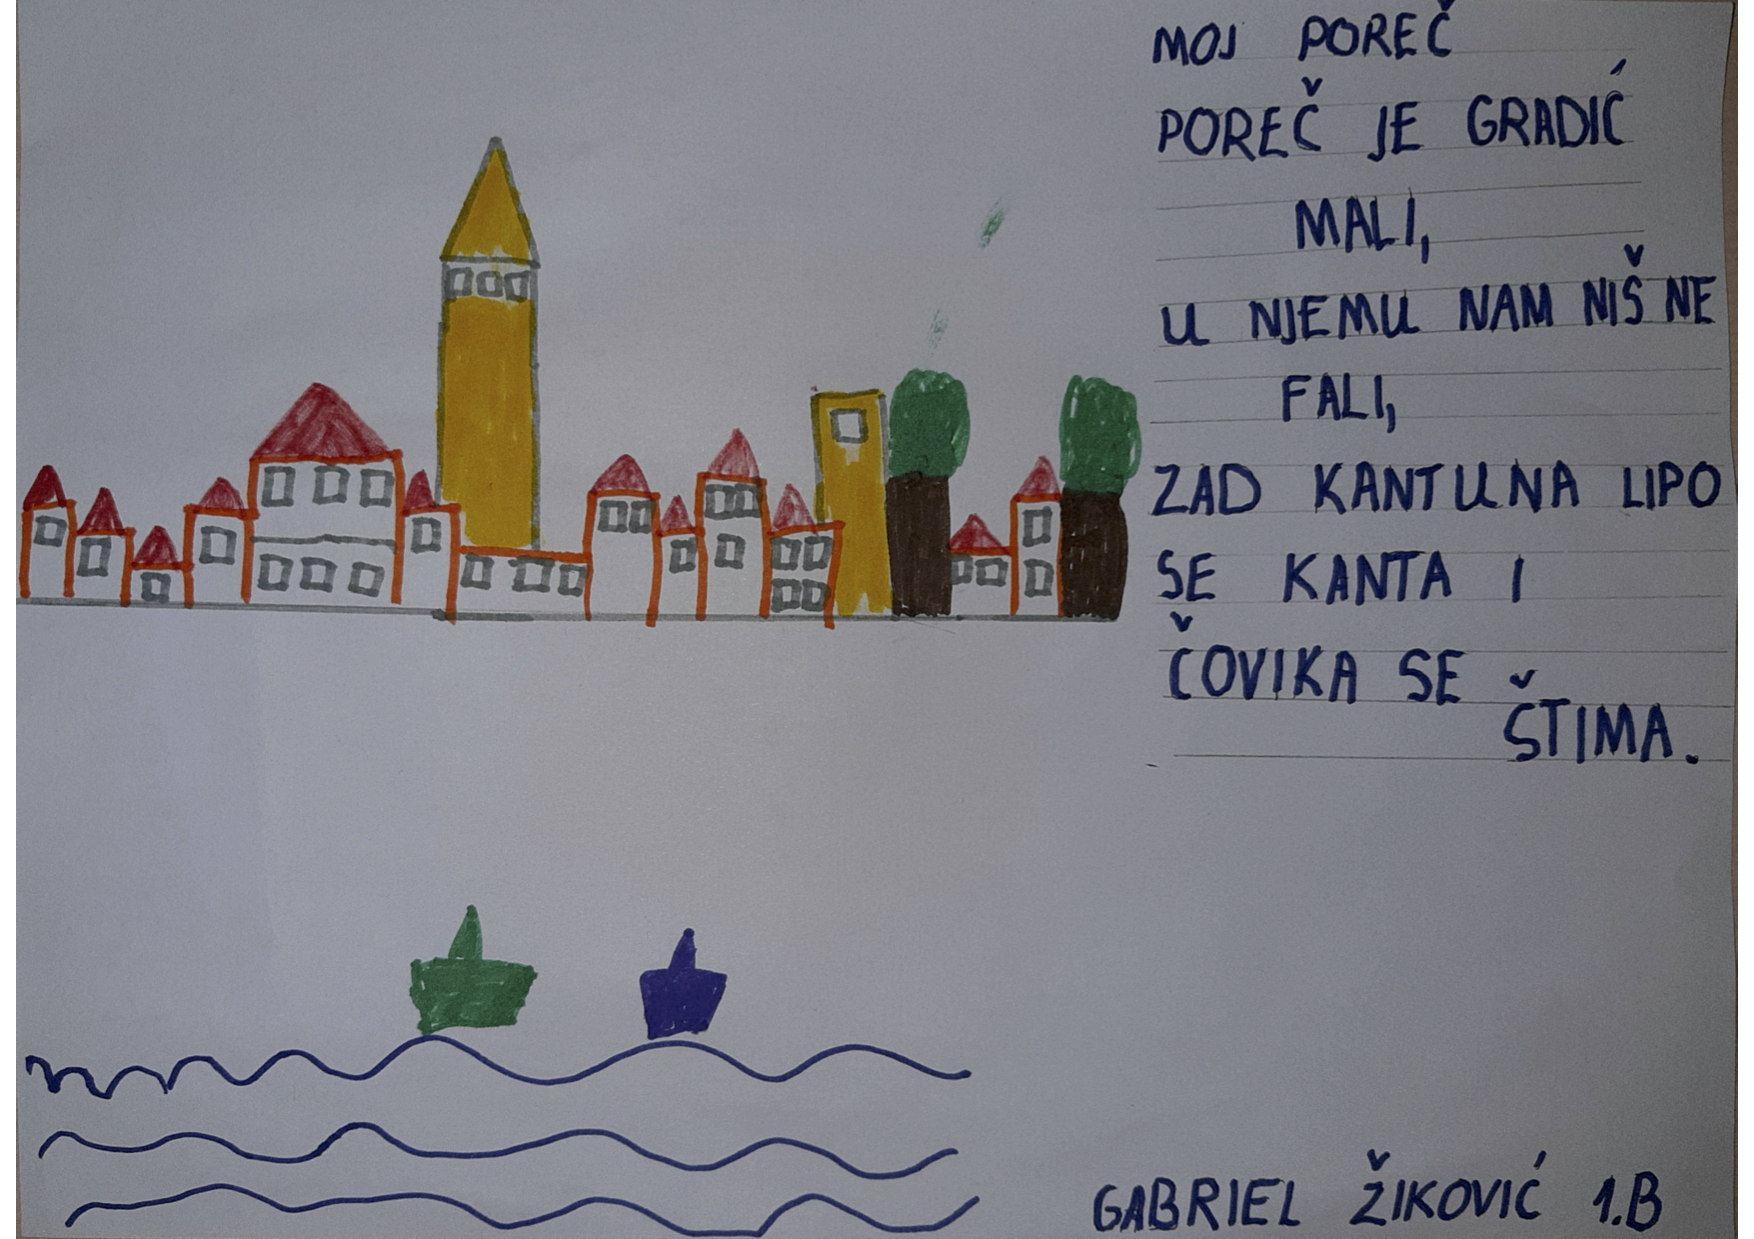 MOJ POREČ
POREČ JE GRADIĆ
MALI,
U NJEMU NAM NIŠ NE
FALI,
ZAD KANTUNA LIPO
SE KANTA I
ČOVIKA SE
ŠTIMA.
GABRIEL ŽIKOVIĆ 1.B